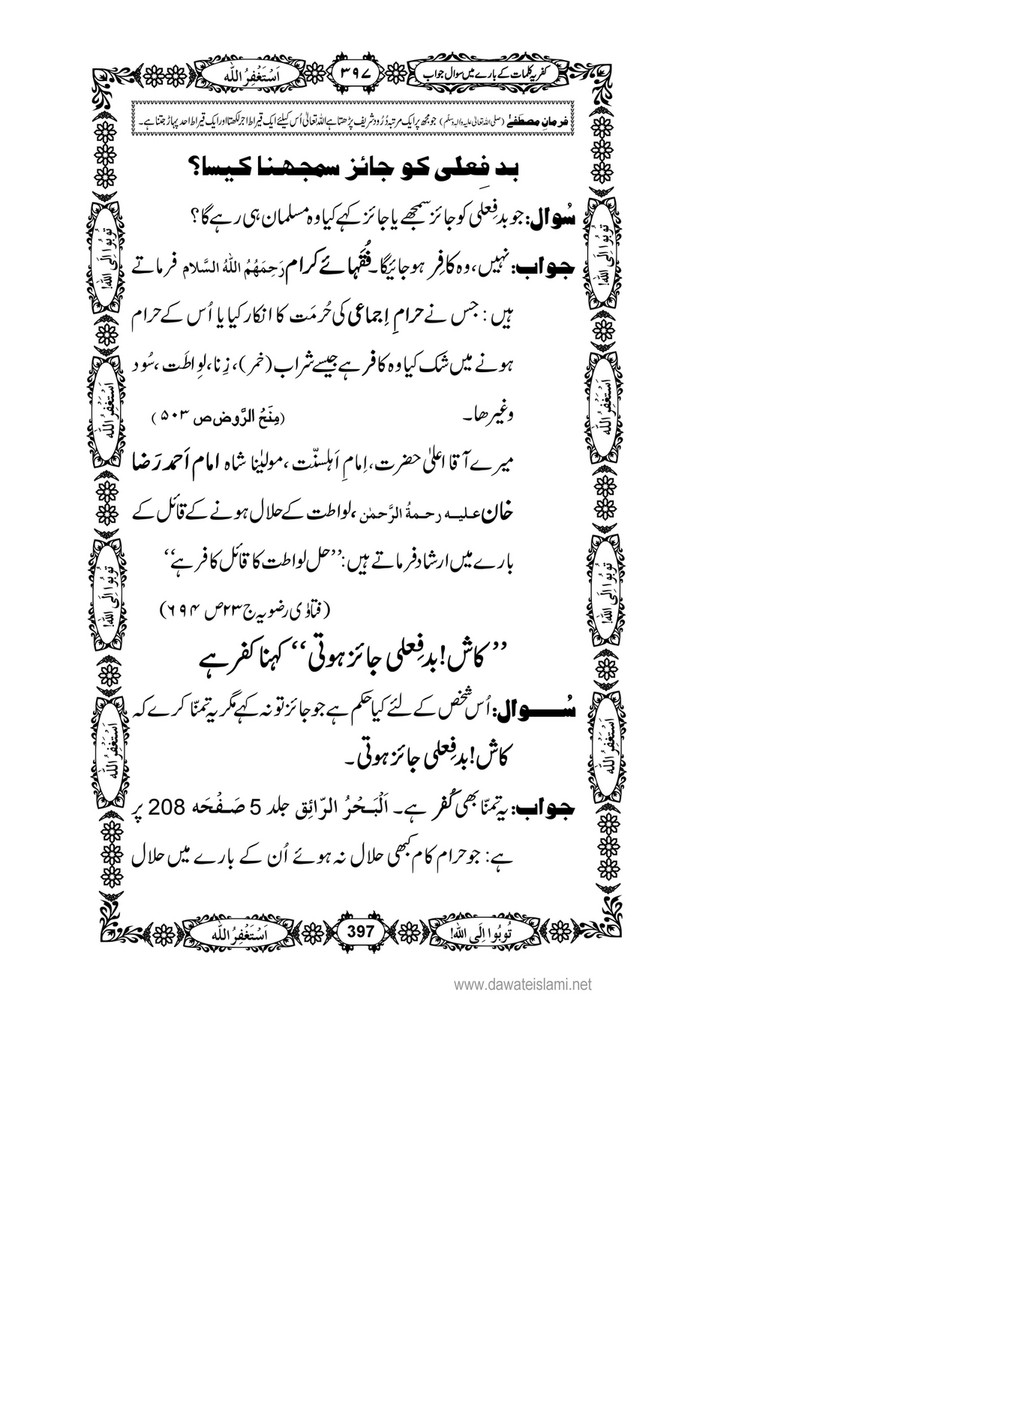 کفریہ کلمات کے بارے میں سوال جواب
۳۹۷
اَسْتَغْفِرُاللّٰه
فرمانِ مصطفےٰ (صلی اللہ تعالیٰ علیہ والہ وسلم) جو مجھ پر ایک مرتبہ دُرُود شریف پڑھتا ہے اللہ تعالیٰ اُس کیلئے ایک قیراط اجر لکھتا اور ایک قیراط احد پہاڑ جتنا ہے۔
بد فِعلی کو جائز سمجھنا کیسا؟
سُوال: جو بدفِعلی کو جائز سمجھے یا جائز کہے کیا وہ مسلمان ہی رہے گا؟
جواب: نہیں، وہ کافِر ہوجائیگا۔ فُقَہائے کرام رَحِمَهُمُ اللهُ السَّلام فرماتے
ہیں: جس نے حرامِ اِجماعی کی حُرمَت کا انکار کیا یا اُس کے حرام
ہونے میں شک کیا وہ کافر ہے جیسے شراب (خمر)، زِنا، لواطَت، سُود
وغیرھا۔ (مِنَحُ الرَّوض ص ۵۰۳)
میرے آقا اعلیٰ حضرت، اِمامِ اَہلسنّت، مولیٰنا شاہ امام اَحمد رَضا
خان علیہ رحمۃُ الرَّحمٰن، لواطت کے حلال ہونے کے قائل کے
بارے میں ارشاد فرماتے ہیں: ’’حل لواطت کا قائل کافر ہے‘‘
(فتاوٰی رضویہ ج۲۳ ص ۶۹۴)
’’کاش! بدفِعلی جائز ہوتی‘‘ کہنا کفر ہے
سُوال: اُس شخص کے لئے کیا حکم ہے جو جائز تو نہ کہے مگر یہ تمنّا کرے کہ
کاش! بدفِعلی جائز ہوتی۔
جواب: یہ تمنّا بھی کُفر ہے۔ اَلْبَحْرُ الرّائِق جلد 5 صَفْحَہ 208 پر
ہے: جو حرام کام کبھی حلال نہ ہوئے اُن کے بارے میں حلال
تُوبُوا اِلَی اللّٰه!
اَسْتَغْفِرُاللّٰه
تُوبُوا اِلَی اللّٰه!
اَسْتَغْفِرُاللّٰه
تُوبُوا اِلَی اللّٰه!
اَسْتَغْفِرُاللّٰه
تُوبُوا اِلَی اللّٰه!
اَسْتَغْفِرُاللّٰه
تُوبُوا اِلَی اللّٰه!
397
اَسْتَغْفِرُاللّٰه
www.dawateislami.net